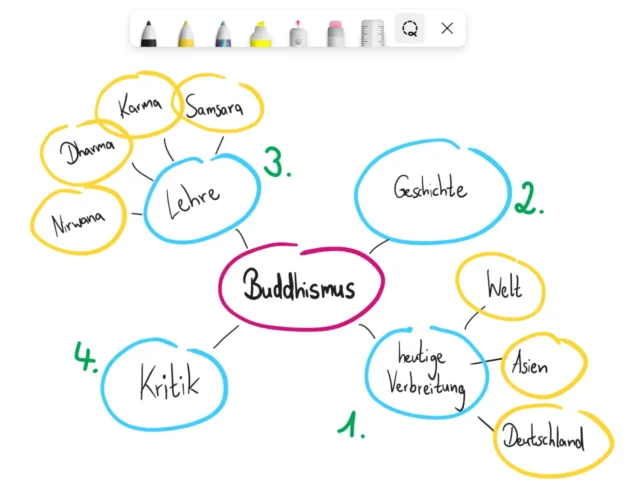 Karma
Samsara
Dharma
Nirwana
Lehre
3.
Geschichte
2.
Buddhismus
Welt
heutige
Verbreitung
Asien
Deutschland
1.
4.
Kritik